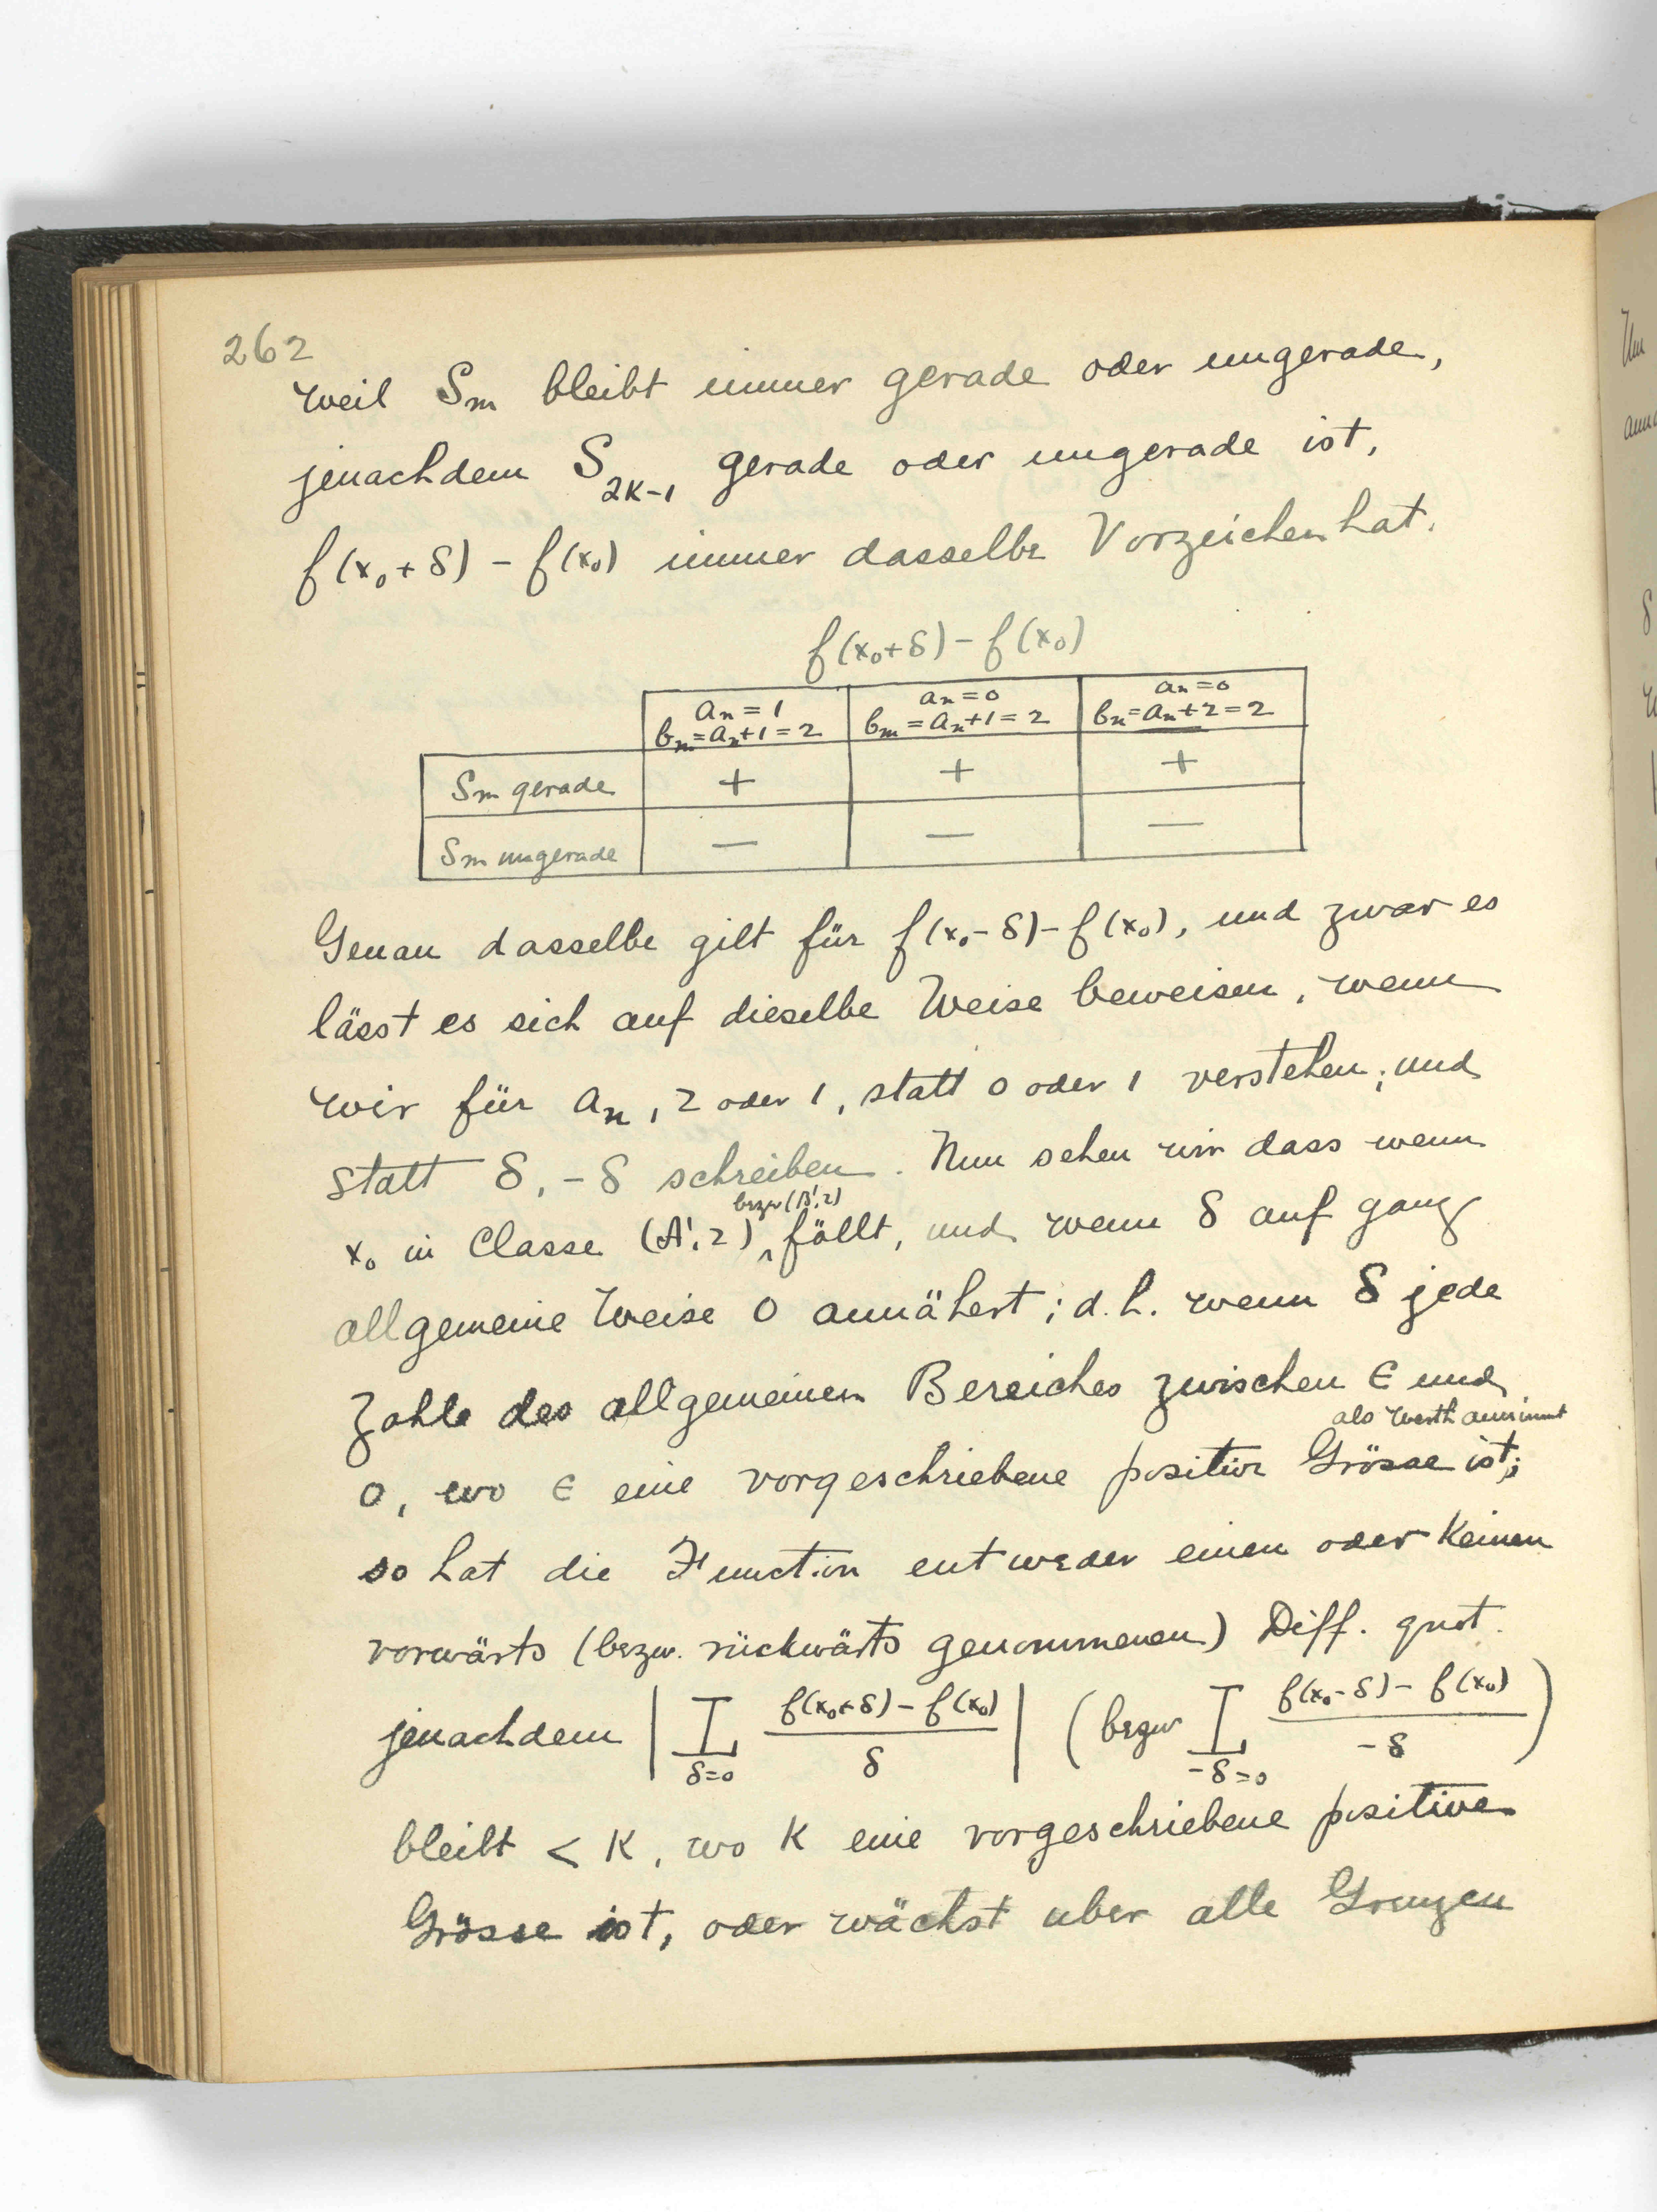 262
weil Sm bleibt immer gerade oder ungerade,
jenachdem S2K-1 gerade oder ungerade ist,
f(x₀+δ) - f(x₀) immer dasselbe Vorzeichen hat.
f(x₀+δ) - f(x₀)
an = 1 an = 0 an = 0
bm = an+1 = 2 bm = an+1 = 2 bn = an+2 = 2
Sm gerade + + +
Sm ungerade — — —
Genau dasselbe gilt für f(x₀-δ)-f(x₀), und zwar es
lässt es sich auf dieselbe Weise beweisen, wenn
wir für an, 2 oder 1, statt 0 oder 1 verstehen; und
statt δ, -δ schreiben. Nun sehen wir dass wenn
bezw (B',2)
x₀ in Classe (A',2) ‸ fällt, und wenn δ auf ganz
allgemeine Weise 0 annähert; d.h. wenn δ jede
Zahle des allgemeinen Bereiches zwischen ϵ und
als Werth annimmt
0, wo ϵ eine vorgeschriebene positive Grösse ist;
so hat die Function entweder einen oder Keinen
vorwärts (bezw. rückwärts genommenen) Diff. quot.
jenachdem | L δ=0 f(x₀+δ) - f(x₀) / δ | (bezw L -δ=0 f(x₀-δ) - f(x₀) / -δ )
bleibt < K, wo K eine vorgeschriebene positive
Grösse ist, oder wächst uber alle Grenzen
Um
δ